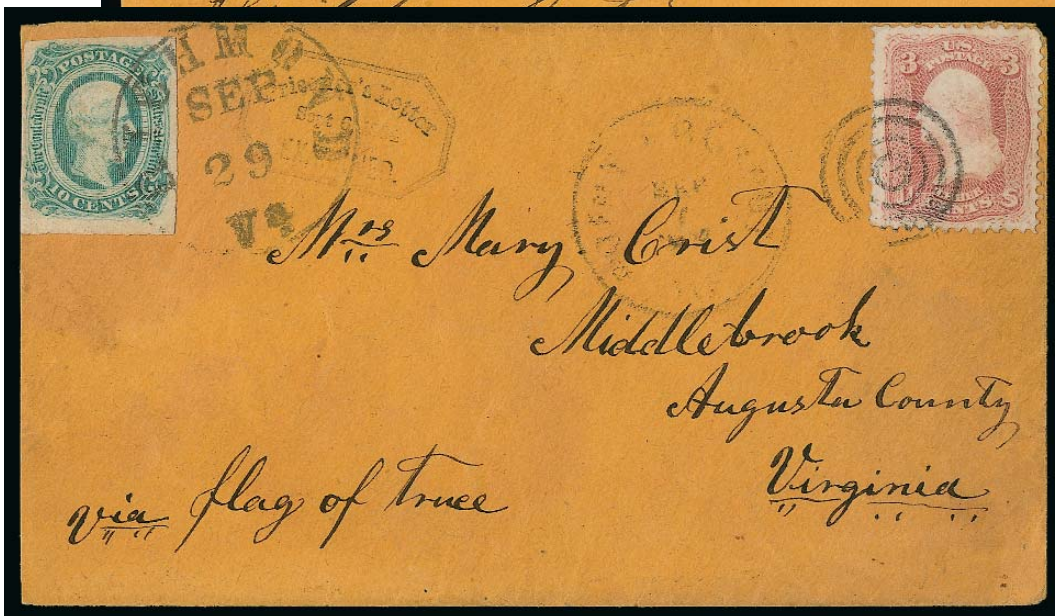 POSTAGE
The Confederate
10 CENTS
SEP
29
Va.
Prisoner's Letter
U.S.
POSTAGE
3 3
SEP
Mrs Mary Crist
Middlebrook
Augusta County
Virginia
via flag of truce